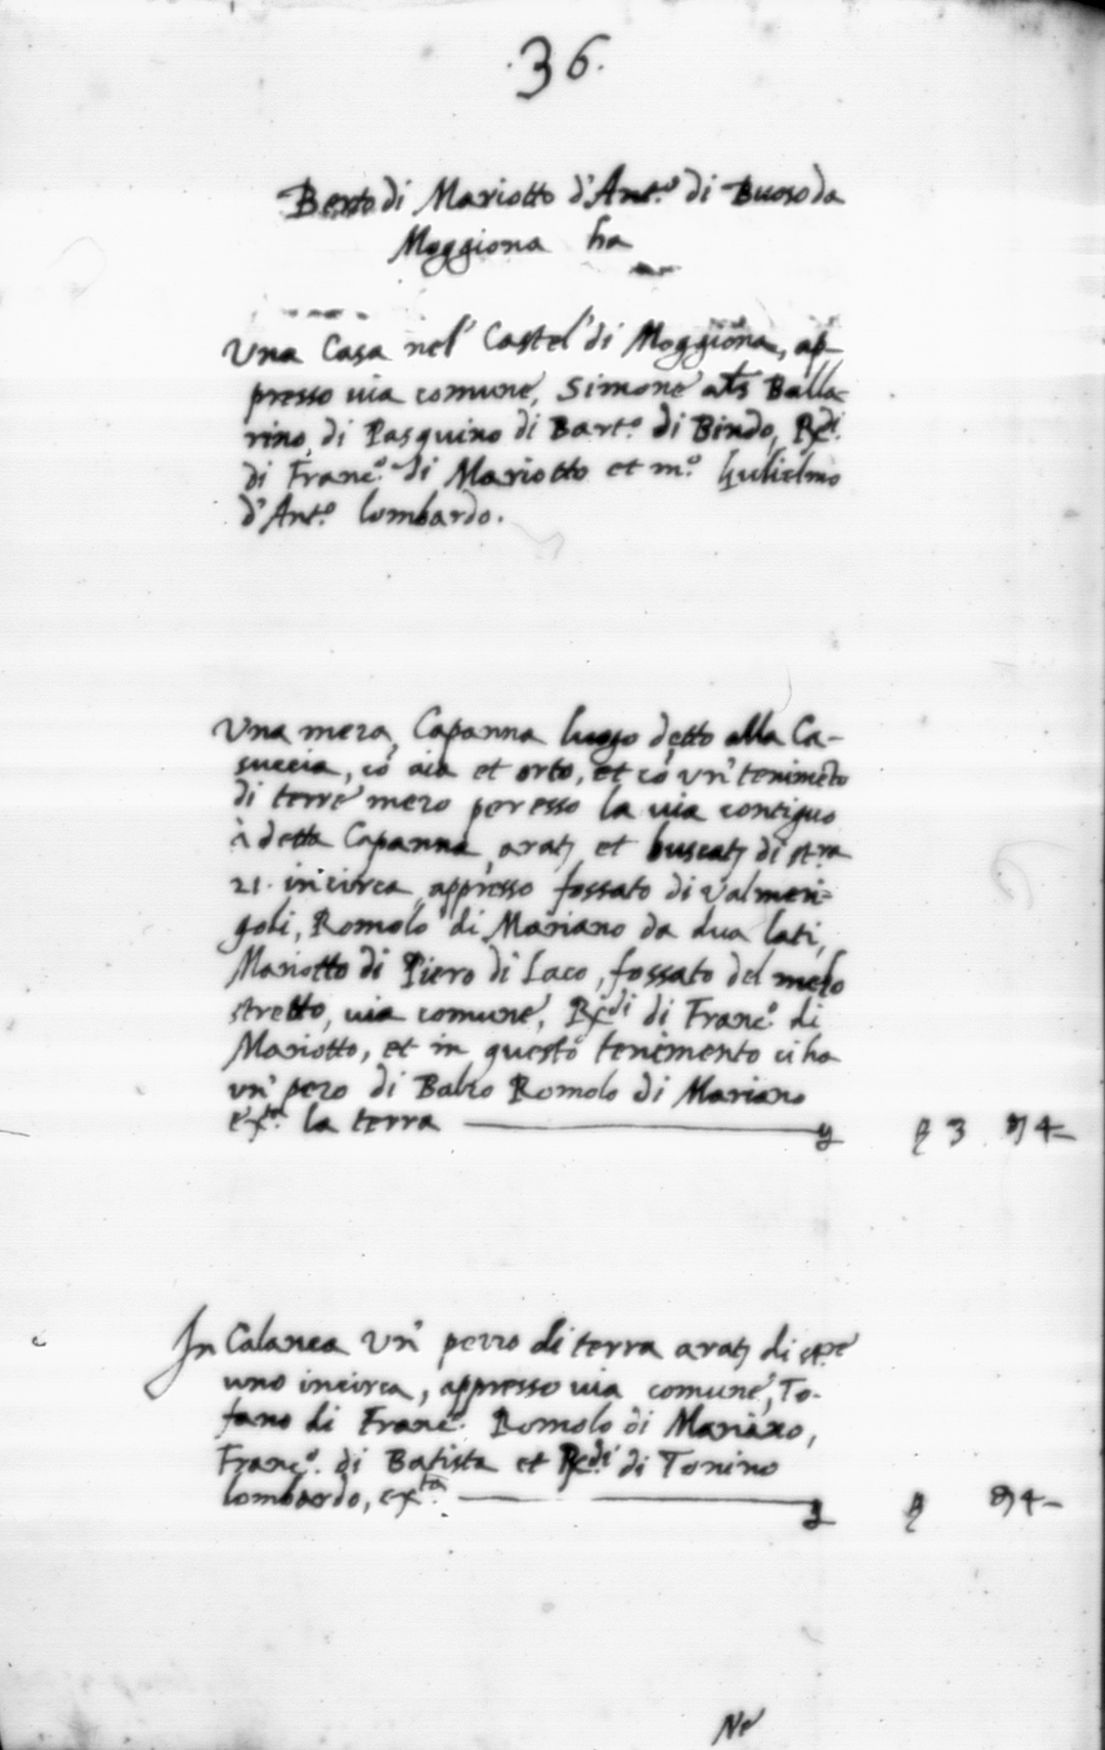 ·36·
Berto di Mariotto d'Ant.º di Buoso da
Moggiona ha
Una Casa nel' Castel' di Moggiona, ap-
presso uia comune, Simone als Balla-
rino, di Pasquino di Bart.º di Bindo, Rᵉᵈⁱ
di Franc.º di Mariotto et m.º Gulielmo
d'Ant.º lombardo.
Una meza Capanna luogo detto alla Ca-
succia, cō aia et orto, et cō un' tenimēto
di terre mezo per esso la uia contiguo
à detta Capanna, arat; et buscat; di st.ra
21. incirca appresso fossato di Valmeri-
goli, Romolo di Mariano da dua lati,
Mariotto di Piero di Laco, fossato del melo
stretto, uia comune, Rᵉᵈⁱ di Franc.º di
Mariotto, et in questo tenimento ci ha
un' pezo di Balzo Romolo di Mariano
ex.ta la terra 3 4-
In Calanca un' pezzo di terra arat; di st.re
uno incirca, appresso uia comune, To-
fano di Franc.º Romolo di Mariano,
Franc.º di Batista et Rᵉᵈⁱ di Tonino
lombardo, ex.ta 4-
Ne